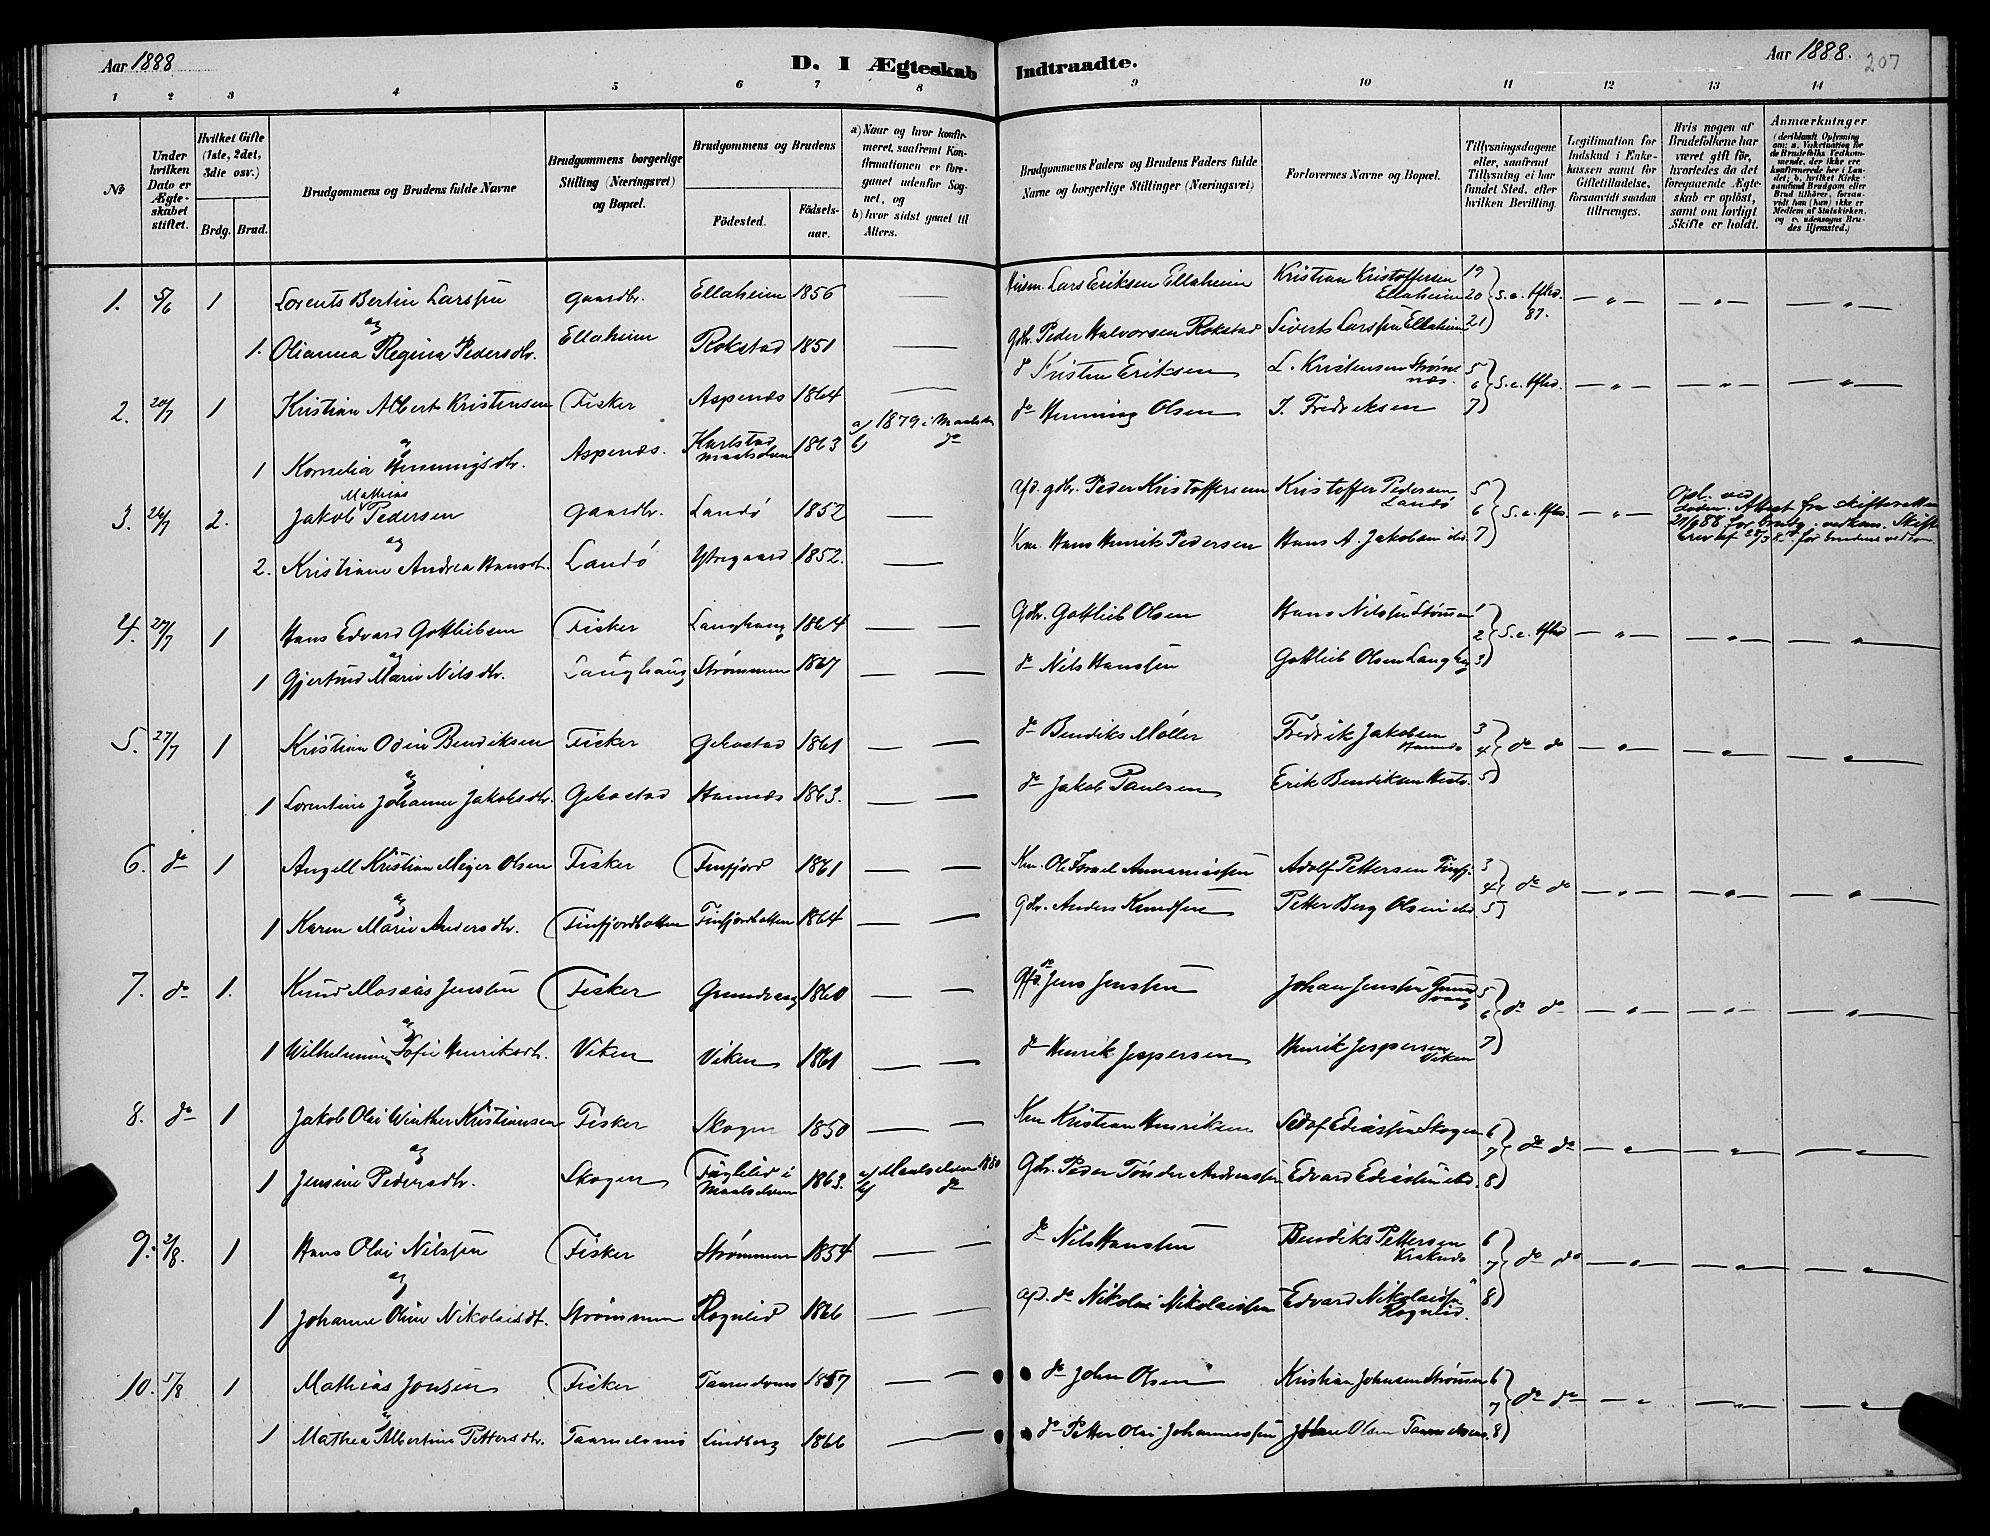 Aar 1888
D. I Ægteskab Indtraadte.
Aar 1888.
207
1 2 3 4 5 6 7 8 9 10 11 12 13 14
No
Under hvilken Dato er Ægteskabet stiftet.
Hvilket Gifte (1ste, 2det, 3die osv.)
Brdg. Brud.
Brudgommens og Brudens fulde Navne
Brudgommens borgerlige Stilling (Næringsvei) og Bopæl.
Brudgommens og Brudens
Födested.
Födsels-aar.
a) Naar og hvor konfirmeret, saafremt Konfirmationen er foregaaet udenfor Sognet, og
b) hvor sidst gaaet til Alters.
Brudgommens Faders og Brudens Faders fulde Navne og borgerlige Stillinger (Næringsvei)
Forlovernes Navne og Bopæl.
Tillysningsdagene eller, saafremt Tillysning ei har fundet Sted, efter hvilken Bevilling.
Legitimation for Indskud i Enkekassen samt for Giftetilladelse, forsaavidt saadan tiltrænges.
Hvis nogen af Brudefolkene har været gift för, hvorledes da det foregaaende Ægteskab er oplöst, samt om lovligt Skifte er holdt.
Anmærkninger
1. 5/6 1 Lorents Bertin Larssen Gaardbr. Ellaheim 1856 — Husm. Lars Eriksen Ellaheim Kristian Kristoffersen Ellaheim 19 20 21 S. e. 87.
og
1. Olianna Regina Pedersdtr. Ellaheim Rokstad 1851 — Gbr. Peder Halvorsen Rokstad Sivert Larssen Ellaheim
2. 20/7 1 Kristian Albert Kristensen Fisker Aspenæs 1864 — do Kristen Eriksen L. Kristensen Strømnæs. 5 6 7 S. e.
og
1 Kornelia Henningsdtr. Aspenæs. Karlstad Maalselven 1863 a) 1879 i b) do do Henning Olsen J. Fredriksen
3. 26/7 2. Jakob Mathias Pedersen Gaardbr. Landø 1852 — gbr. Peder Kristoffersen Kristoffer Pedersen Landø 5 6 7 S. e.
og
2. Kristiane Andrea Hansdt. Landö Ytregaard 1852. — Km. Hans Henrik Pedersen Hans A. Jakobsen ibd
4. 27/7 1 Hans Edvard Gottliebsen Fisker Langhaug 1864 — — Gbr. Gottlieb Olsen Hans Nilssen Strømmen 1 2 3 S. e.
og
1 Gjertrud Marie Nilsdtr. Langhaug Strømmen 1867 — — do Nils Hanssen Gottlieb Olsen
5. 27/7 1 Kristian Odin Bendiksen Fisker Gibostad 1861 — — do Bendiks Møller Fredrik Jakobsen 3 4 5 do do
og
1 Lorentine Johanne Jakobsdtr. Gibostad Hannæs 1863. — — do Jakob Paulsen Erik Bendiksen
6. do 1 Angell Kristian Meyer Olsen Fisker Finfjord 1861 — — Km Ole Israel Annaniassen Adolf Pettersen Finfj. 3 4 5 do do
og
1 Karen Marie Andersdtr. Finfjordbotten Finfjordbotten 1864 — — Gbr. Anders Knudsen Petter Berg Olsen ibd.
7. do 1. Knud Mosæus Jenssen Fisker Grundvaag 1860 — — do Jens Jenssen Johan Jenssen Grundvaag 5 6 7 do do
og
1 Wilhelmine Sofie Henriksdt. Viken Viken 1861 — — do Henrik Jespersen Henrik Jespersen Viken
8. do 1 Jakob Olai Winther Kristiansen Fisker Skogen 1850 — — Km Kristian Henriksen Adolf Skogen 6 7 8 do do
og
1 Jensine Pedersdtr. Skogen Fuglelid i Maalselven 1863. a) Maalselven 1880 b) do Gbr. Peder Tønder Andreassen Edvard ibd.
9. 3/8. 1 Hans Olai Nilssen Fisker Strømmen 1854 — — do Nils Hanssen Bendiks Pettersen Kraknæs 6 7 8 do do
og
1 Johanne Oline Nikolaisdt. Strömmen Rognlid 1866 — — do Nikolai Nikolaissen Edvard Nikolaissen Rognlid.
10. 1/8 1 Mathias Jonsen Fisker Taarnelvnes 1857 — — do John Olsen Kristian Johnsen Strømmen 6 7 8 do do
og
1 Mathea Albertine Pettersdtr. Taarnelvnes Lindberg 1866 — — do Petter Olai Johannessen Johan Olsen Taarnelvnes.